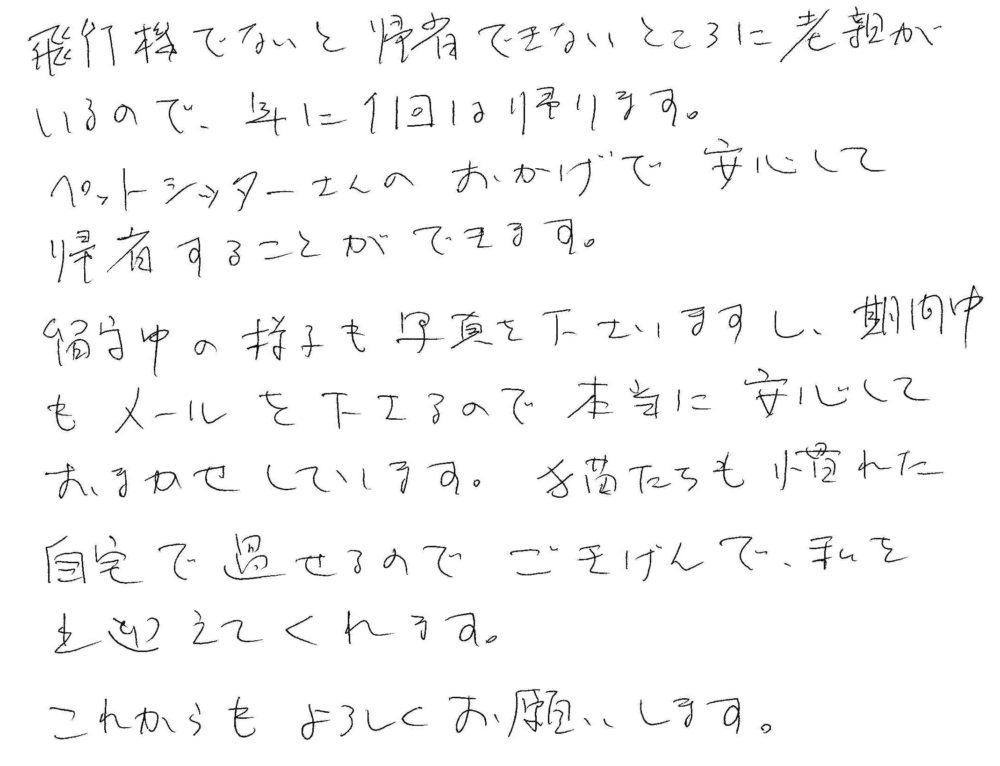 飛行機でないと帰省できないところに老親が
いるので、年に1回は帰ります。
ペットシッターさんのおかげで安心して
帰省することができます。
留守中の様子も写真を下さいますし、期間中
もメールを下さるので本当に安心して
おまかせしています。猫たちも慣れた
自宅で過せるのでごきげんで、私を
迎えてくれます。
これからもよろしくお願いします。